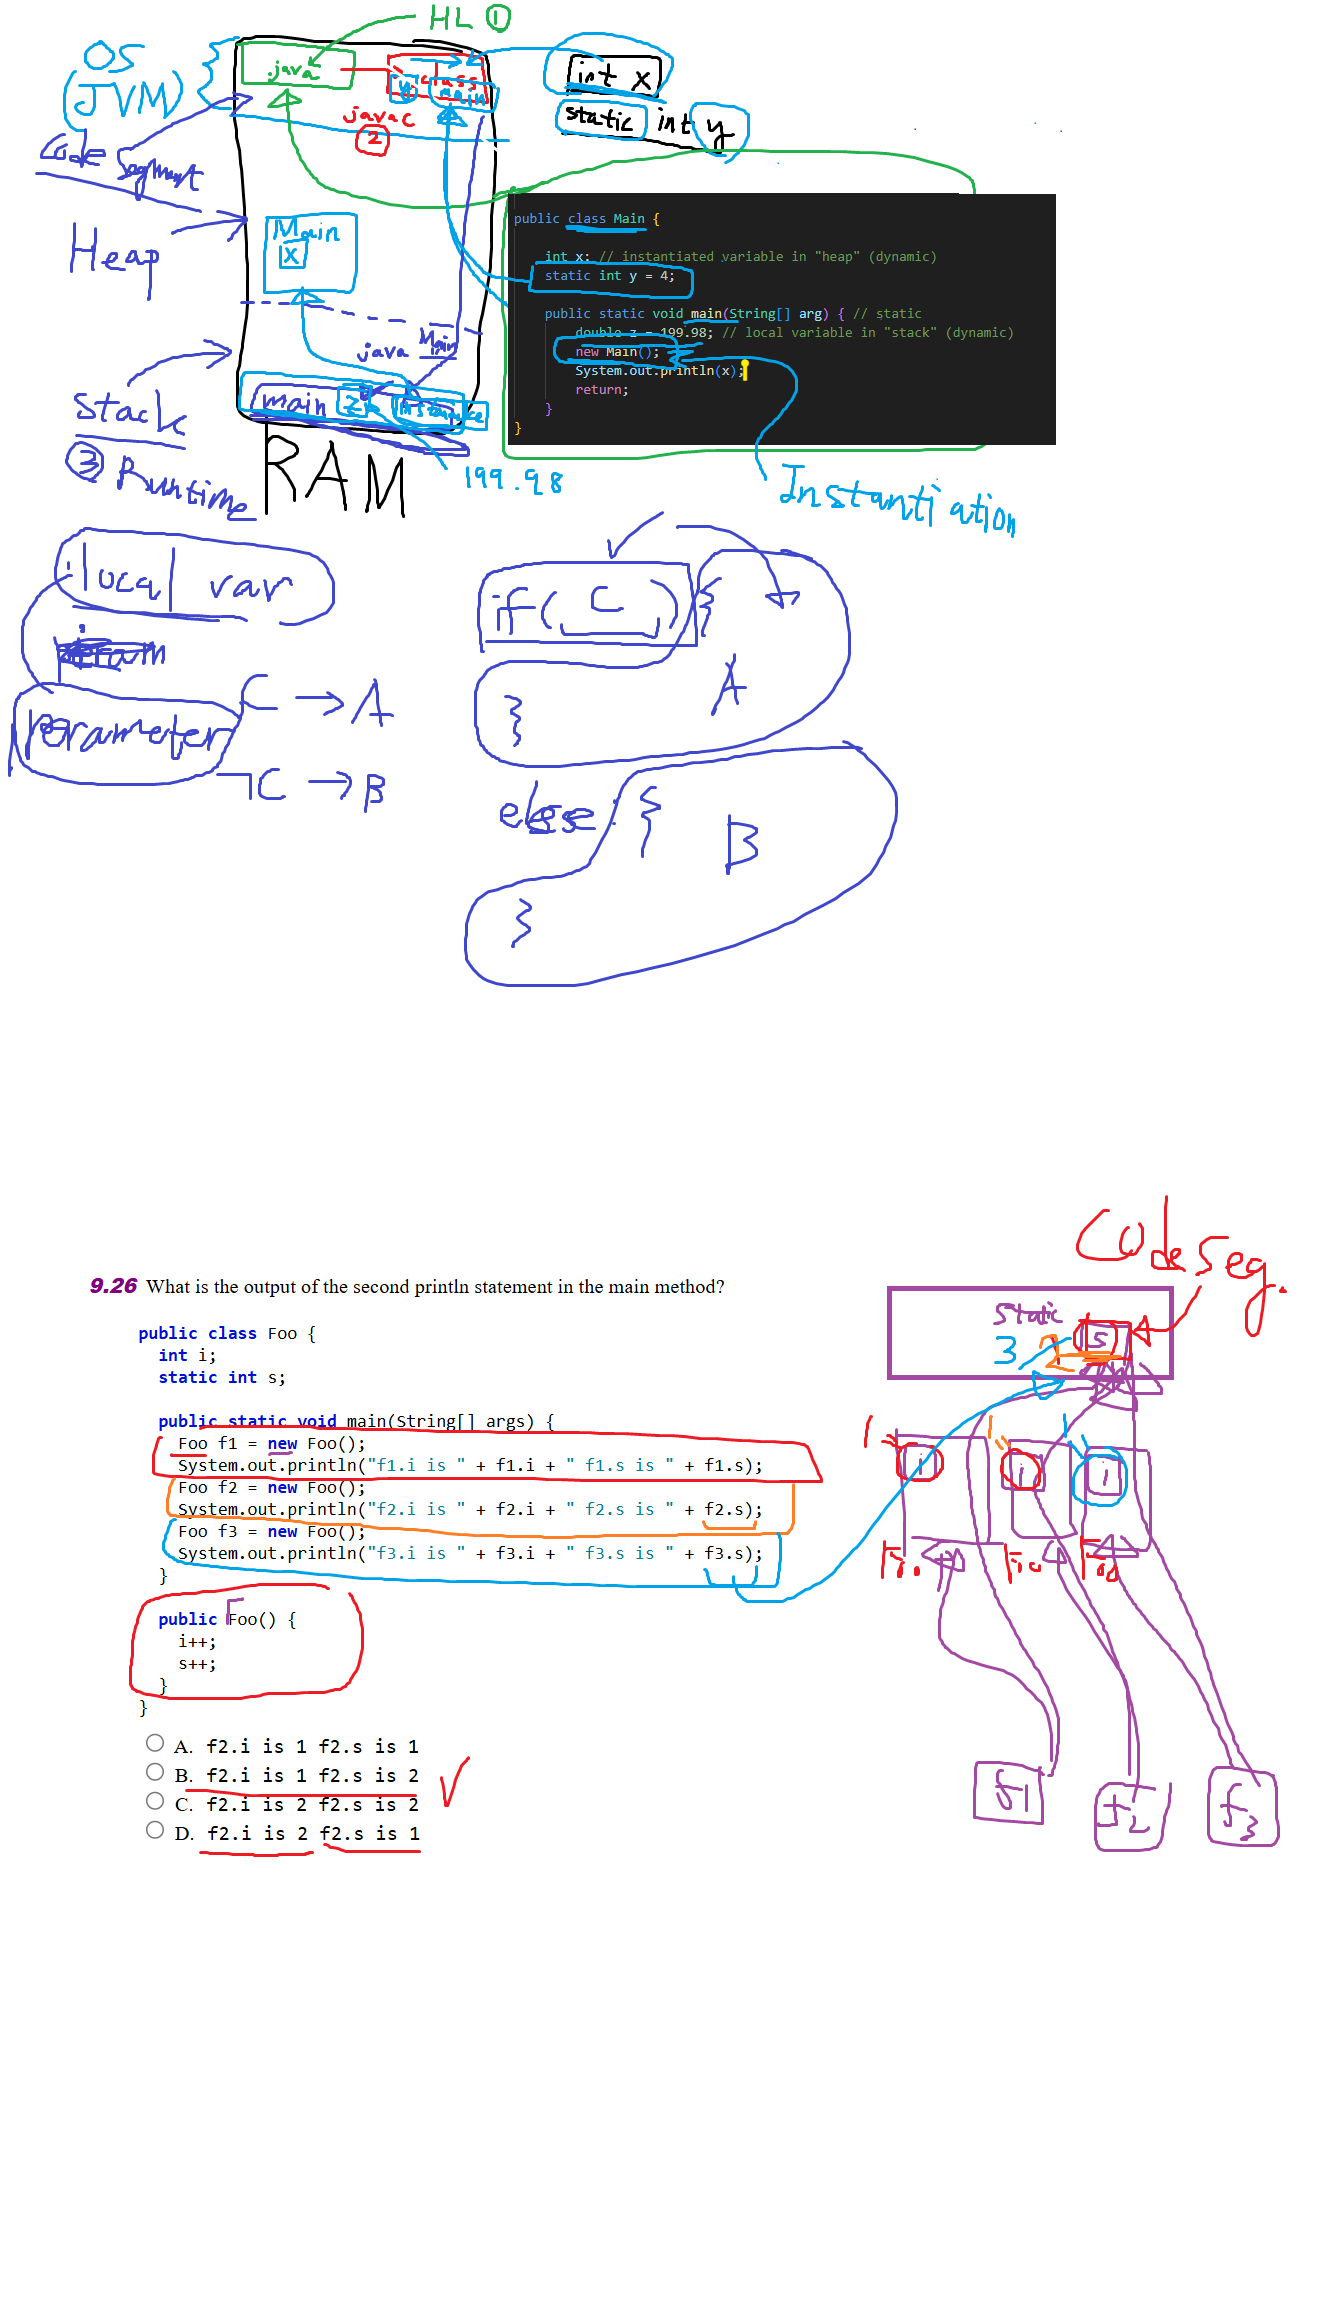 HL ①
OS
(JVM)
java
class
y
main
javac
2
int x
static int y
Code Segment
Heap
Main
x
java Main
Stack
main z instance
③ Runtime
RAM
199.98
Instantiation
public class Main {
int x; // instantiated variable in "heap" (dynamic)
static int y = 4;
public static void main(String[] arg) { // static
double z = 199.98; // local variable in "stack" (dynamic)
new Main();
System.out.println(x);
return;
}
}
local var
Parameter
C → A
¬C → B
if( C ) {
A
}
else {
B
}
Code Seg.
9.26 What is the output of the second println statement in the main method?
public class Foo {
int i;
static int s;
public static void main(String[] args) {
Foo f1 = new Foo();
System.out.println("f1.i is " + f1.i + " f1.s is " + f1.s);
Foo f2 = new Foo();
System.out.println("f2.i is " + f2.i + " f2.s is " + f2.s);
Foo f3 = new Foo();
System.out.println("f3.i is " + f3.i + " f3.s is " + f3.s);
}
public Foo() {
i++;
s++;
}
}
A. f2.i is 1 f2.s is 1
B. f2.i is 1 f2.s is 2
C. f2.i is 2 f2.s is 2
D. f2.i is 2 f2.s is 1
static
3 2 s
1 1 1
i i i
f1 f2 f3